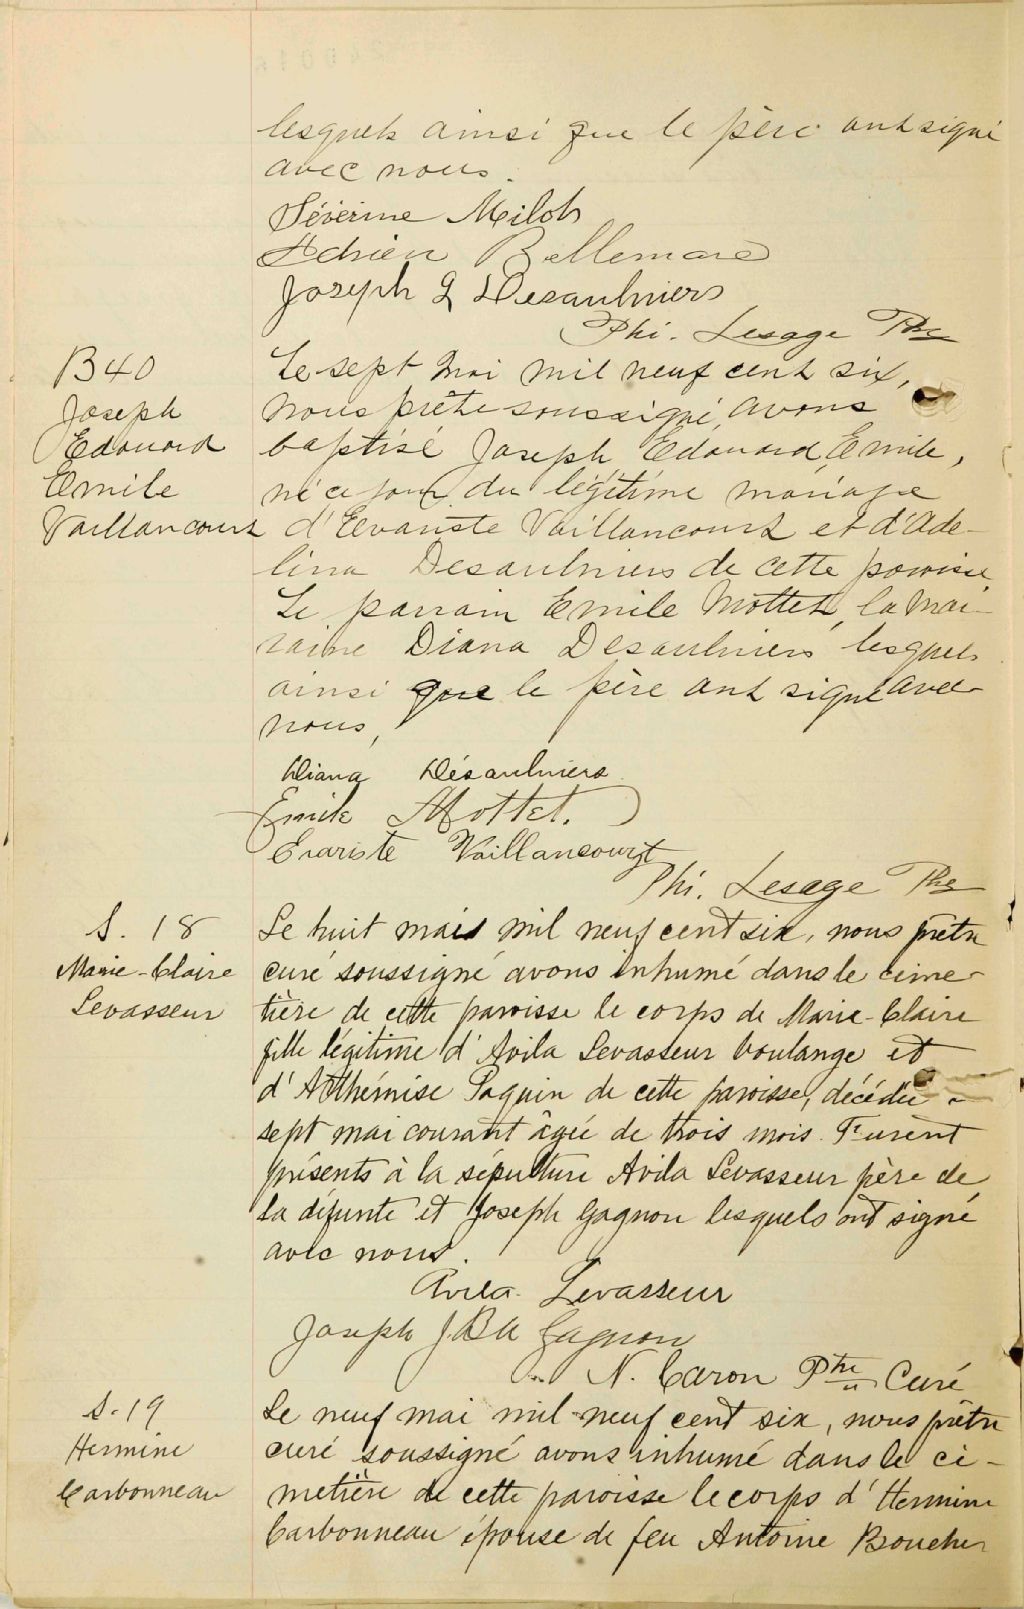 lesquels ainsi que le père ont signé
avec nous.
Séverine Milot
Adrien Bellemare
Joseph L Desaulniers
Phi. Lesage Ptre
B40
Joseph
Edouard
Emile
Vaillancourt
Le sept mai mil neuf cent six,
nous prêtre soussigné, avons
baptisé Joseph Edouard, Emile,
né ce jour du légitime mariage
d'Evariste Vaillancourt et d'Ade-
lina Desaulniers de cette paroisse
Le parrain Emile Mottet, la mar-
raine Diana Desaulniers lesquels
ainsi que le père ont signé avec
nous,
Diana Désaulniers
Emile Mottet.
Evariste Vaillancourt
Phi. Lesage Ptre
S. 18
Marie-Claire
Levasseur
Le huit mai mil neuf cent six, nous prêtre
curé soussigné avons inhumé dans le cime-
tière de cette paroisse le corps de Marie-Claire
fille légitime d'Avila Levasseur boulanger et
d'Arthémise Paquin de cette paroisse, décédée
sept mai courant âgée de trois mois. Furent
présents à la sépulture Avila Levasseur père de
la défunte et Joseph Gagnon lesquels ont signé
avec nous.
Avila Levasseur
Joseph J.Bte Gagnon
N. Caron Ptre Curé
S. 19
Hermine
Carbonneau
Le neuf mai mil neuf cent six, nous prêtre
curé soussigné avons inhumé dans le ci-
metière de cette paroisse le corps d'Hermine
Carbonneau épouse de feu Antoine Boucher